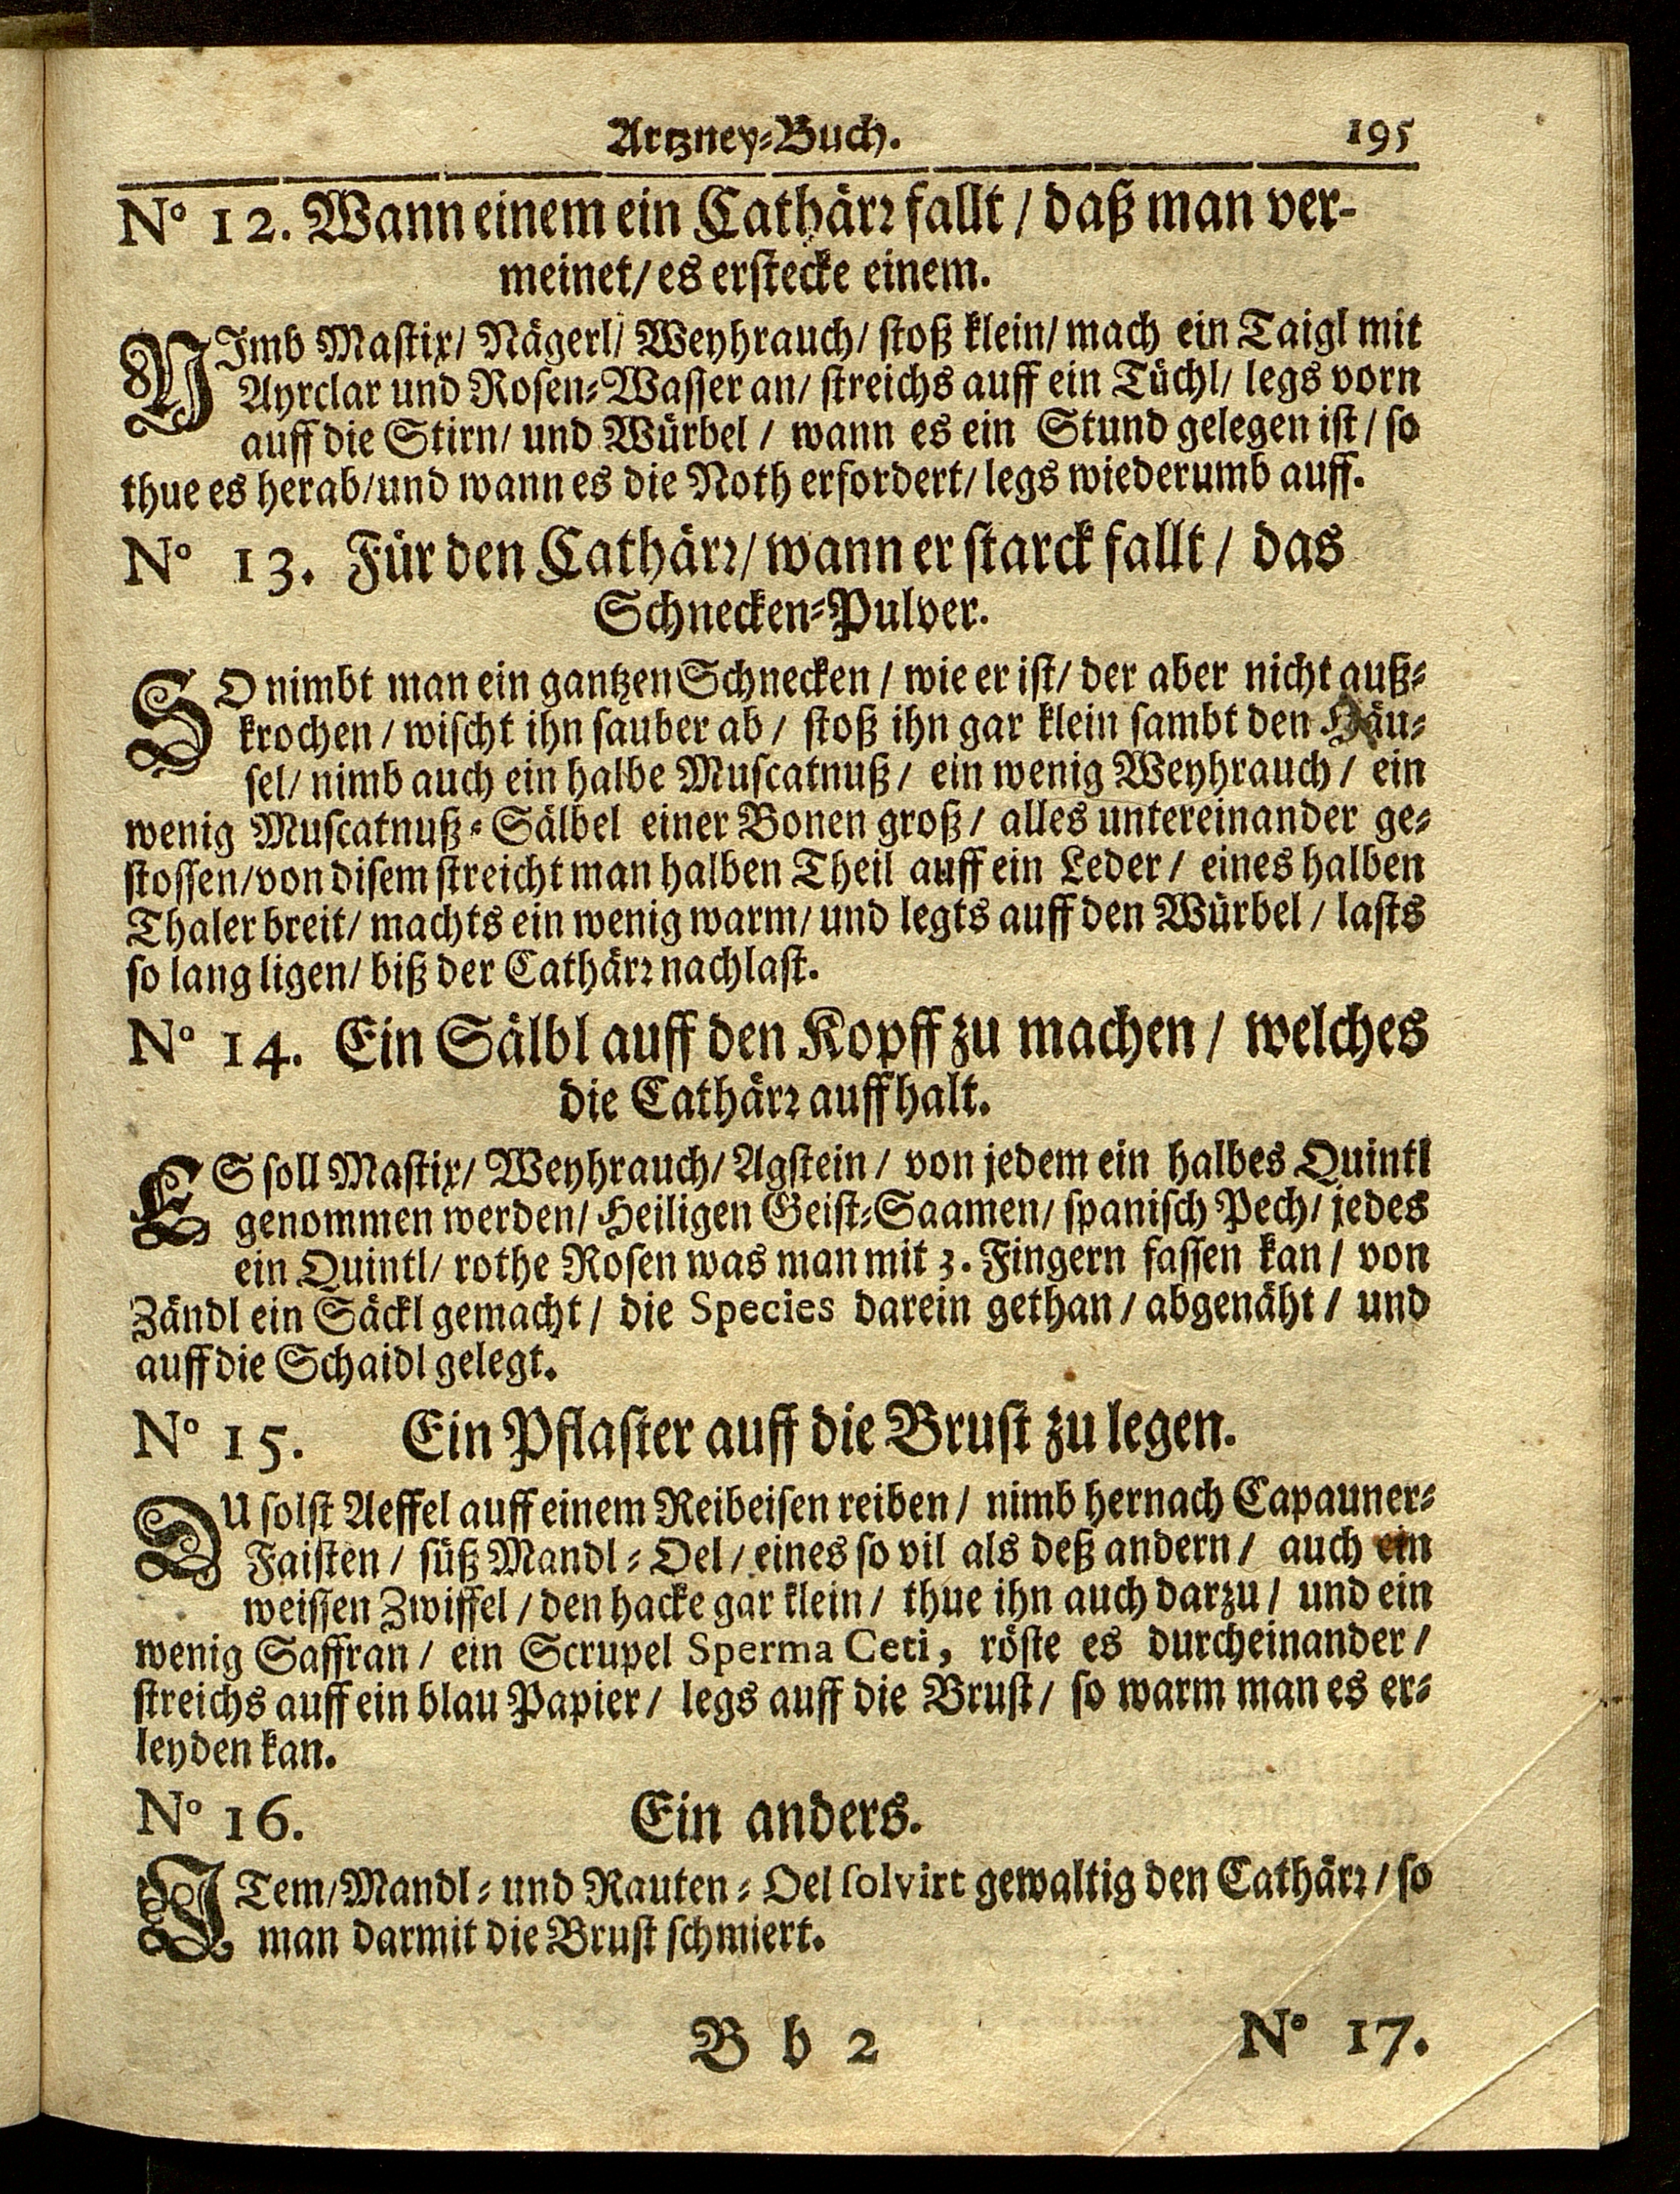 Artzney-Buch. 195
No 12. Wann einem ein Cathärr fallt / daß man ver-
meinet / es erstecke einem.
NImb Mastix / Nägerl / Weyhrauch / stoß klein / mach ein Taigl mit
Ayrclar und Rosen-Wasser an / streichs auff ein Tüchl / legs vorn
auff die Stirn / und Würbel / wann es ein Stund gelegen ist / so
thue es herab / und wann es die Noth erfordert / legs wiederumb auff.
No 13. Für den Cathärr / wann er starck fallt / das
Schnecken-Pulver.
SO nimbt man ein gantzen Schnecken / wie er ist / der aber nicht auß-
krochen / wischt ihn sauber ab / stoß ihn gar klein sambt den Häu-
sel / nimb auch ein halbe Muscatnuß / ein wenig Weyhrauch / ein
wenig Muscatnuß-Sälbel einer Bonen groß / alles untereinander ge-
stossen / von disem streicht man halben Theil auff ein Leder / eines halben
Thaler breit / machts ein wenig warm / und legts auff den Würbel / lasts
so lang ligen / biß der Cathärr nachlast.
No 14. Ein Sälbl auff den Kopff zu machen / welches
die Cathärr auffhalt.
ES soll Mastix / Weyhrauch / Agstein / von jedem ein halbes Quintl
genommen werden / Heiligen Geist-Saamen / spanisch Pech / jedes
ein Quintl / rothe Rosen was man mit 3. Fingern fassen kan / von
Zändl ein Säckl gemacht / die Species darein gethan / abgenäht / und
auff die Schaidl gelegt.
No 15. Ein Pflaster auff die Brust zu legen.
DU solst Aeffel auff einem Reibeisen reiben / nimb hernach Capauner-
Faisten / süß Mandl-Oel / eines so vil als deß andern / auch ein
weissen Zwiffel / den hacke gar klein / thue ihn auch darzu / und ein
wenig Saffran / ein Scrupel Sperma Ceti, röste es durcheinander /
streichs auff ein blau Papier / legs auff die Brust / so warm man es er-
leyden kan.
No 16. Ein anders.
ITem / Mandl- und Rauten-Oel solvirt gewaltig den Cathärr / so
man darmit die Brust schmiert.
B b 2 No 17.